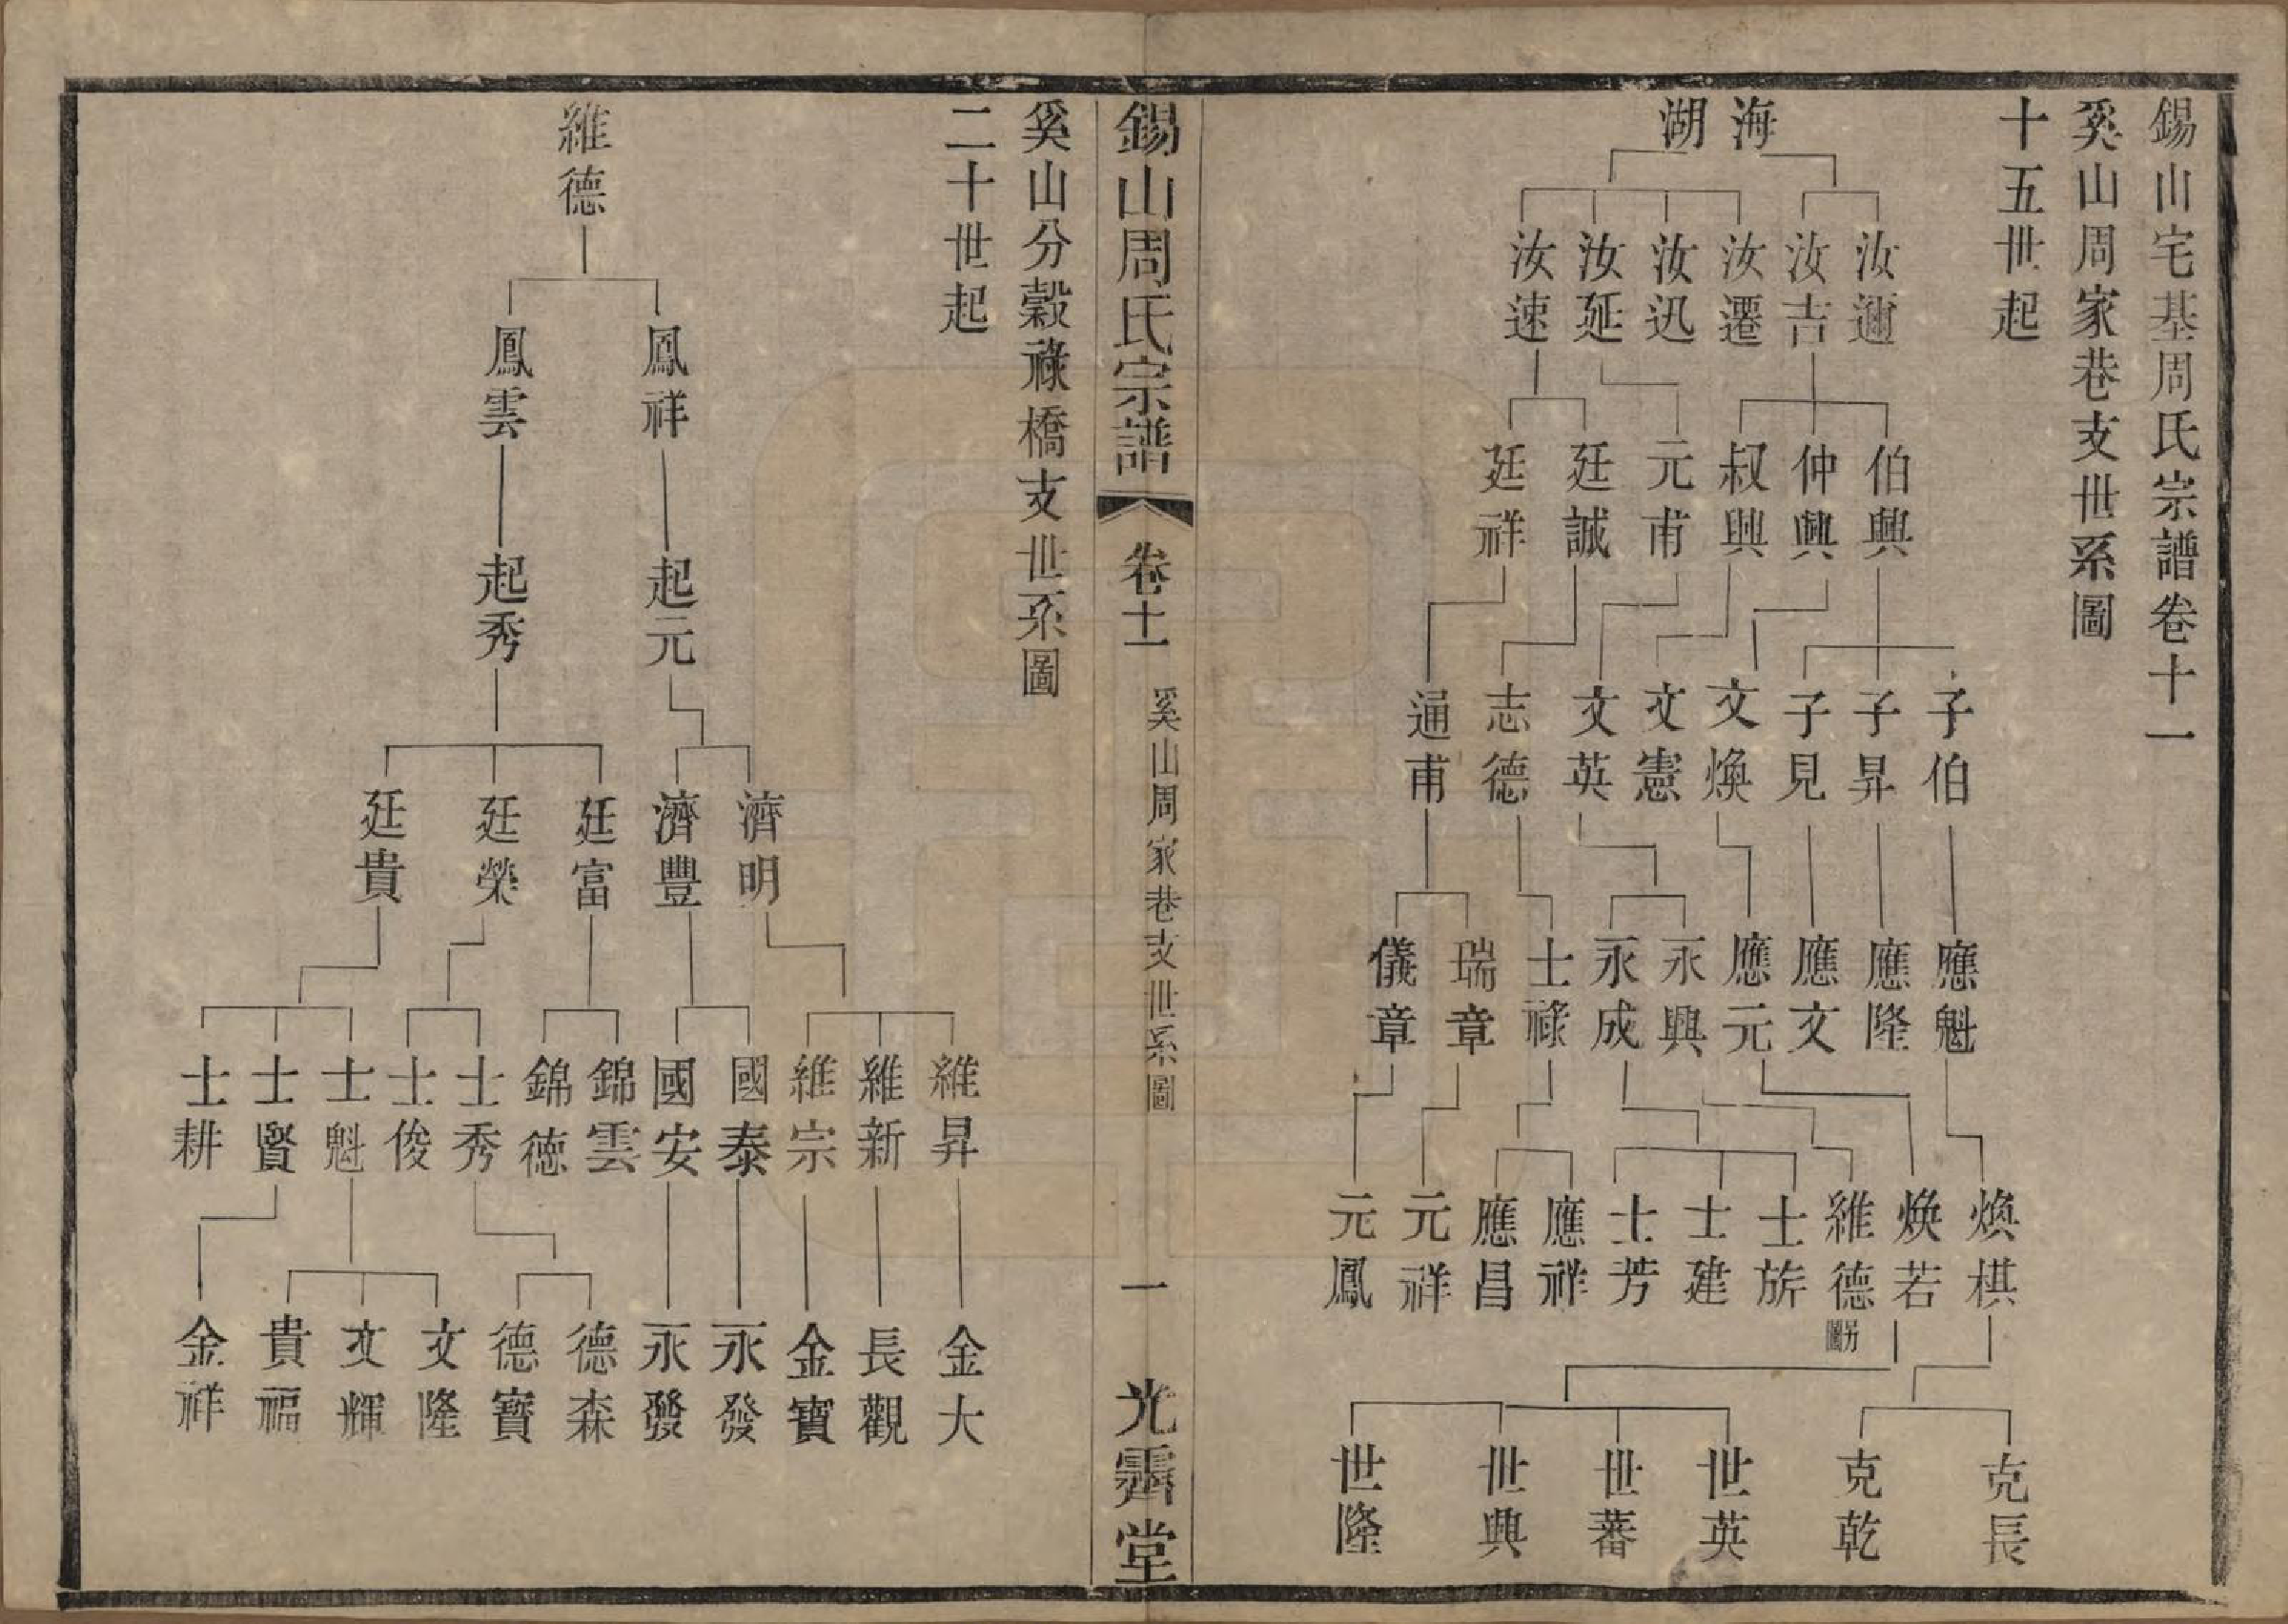 錫山宅基周氏宗譜卷十一
奚山周家巷支世系圖
十五世起
海 湖
汝邇 汝吉 汝遷 汝迅 汝延 汝速
伯興 仲興 叔興 元甫 廷誠 廷祥
子伯 子昇 子見 文煥 文憲 文英 志德 通甫
應魁 應隆 應文 應元 永興 永成 士祿 瑞章 儀章
煥棋 焕若 維德 另圖 士旂 士建 士芳 應祥 應昌 元祥 元鳳
克長 克乾 世英 世蕃 世興 世隆
錫山周氏宗譜 卷十一 奚山周家巷支世系圖 一 光霽堂
奚山分穀祿橋支世系圖
二十世起
維德
鳳祥 鳳雲
起元 起秀
濟明 濟豐 廷富 廷榮 廷貴
維昇 維新 維宗 國泰 國安 錦雲 錦德 士秀 士俊 士魁 士賢 士耕
金大 長觀 金寶 永發 永發 德森 德寶 文隆 文輝 貴福 金祥